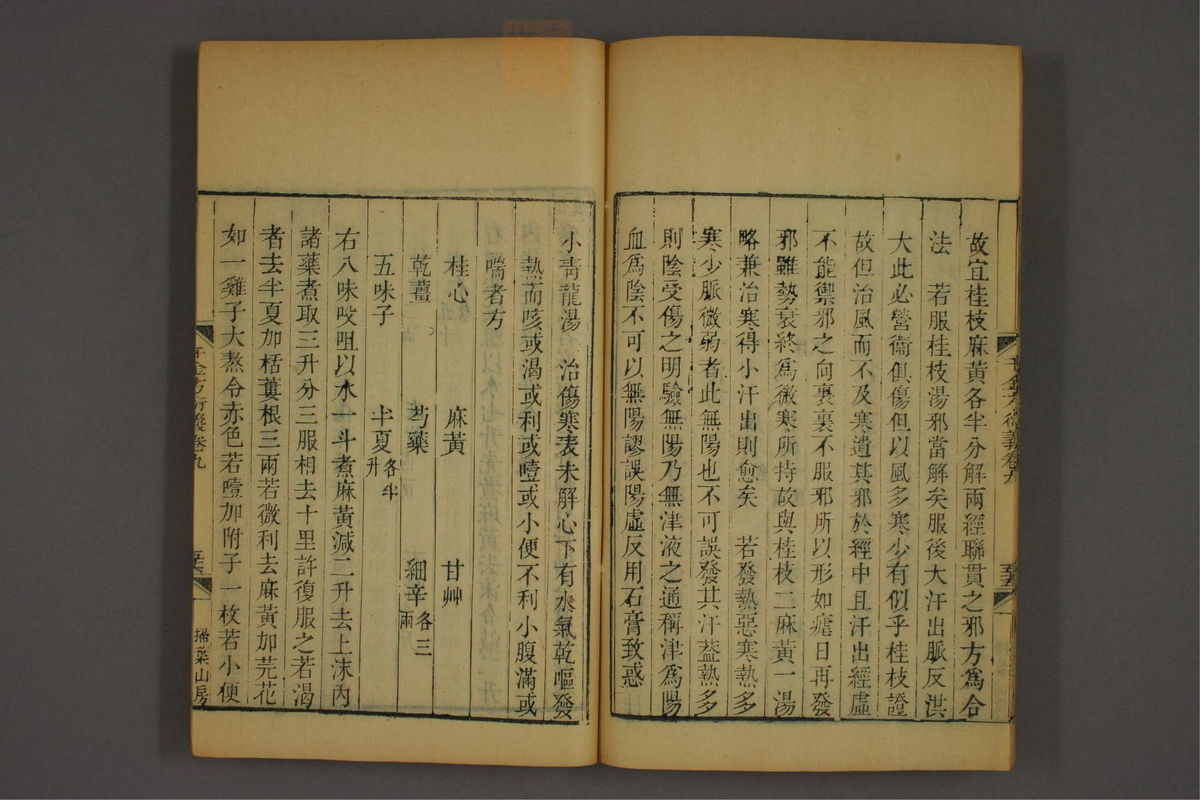 故宜桂枝麻黃各半分解兩經聯貫之邪方爲合
法　若服桂枝湯邪當解矣服後大汗出脈反洪
大此必營衞俱傷但以風多寒少有似乎桂枝證
故但治風而不及寒遺其邪於經中且汗出經虛
不能禦邪之向裏裏不服邪所以形如瘧日再發
邪雖勢衰終爲微寒所持故與桂枝二麻黃一湯
略兼治寒得小汗出則愈矣　若發熱惡寒熱多
寒少脈微弱者此無陽也不可誤發其汗葢熱多
則陰受傷之明驗無陽乃無津液之通稱津爲陽
血爲陰不可以無陽謬誤陽虛反用石膏致惑
千金方衍義卷九
小靑龍湯　治傷寒表未解心下有水氣乾嘔發
熱而咳或渴或利或噎或小便不利小腹滿或
喘者方
桂心　麻黃　甘艸
乾薑　芍藥　細辛各三兩
五味子　半夏各半升
右八味㕮咀以水一斗煮麻黃減二升去上沫內
諸藥煮取三升分三服相去十里許復服之若渴
者去半夏加栝蔞根三兩若微利去麻黃加芫花
如一雞子大熬令赤色若噎加附子一枚若小便
千金方衍義卷九
掃葉山房